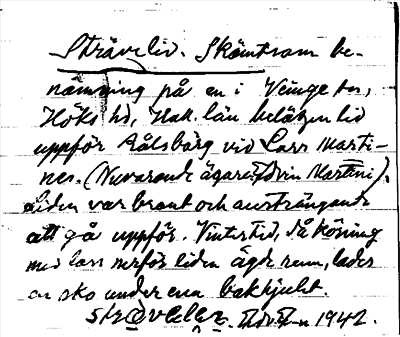 Strävelid. Skämtsam be-
nämning på en i Veinge sn,
Höks hd, Hall. län belägen lid
uppför Bålsbärg vid Lars Marti-
nes. (Nuvarande ägare Edvin Martini).
Liden var brant och ansträngande
att gå uppför. Vintertid, då körning
med lass nerför liden ägde rum, lades
en sko under ena bakhjulet.
1942.